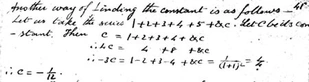 Another way of finding the constant is as follows — 48.
Let us take the series 1+2+3+4+5+&c. Let C be its con-
-stant. Then C = 1+2+3+4+&c
∴ 4C = 4 +8 +&c
∴ -3C = 1-2+3-4+&c = 1/(1+1)² = 1/4
∴ C = -1/12.